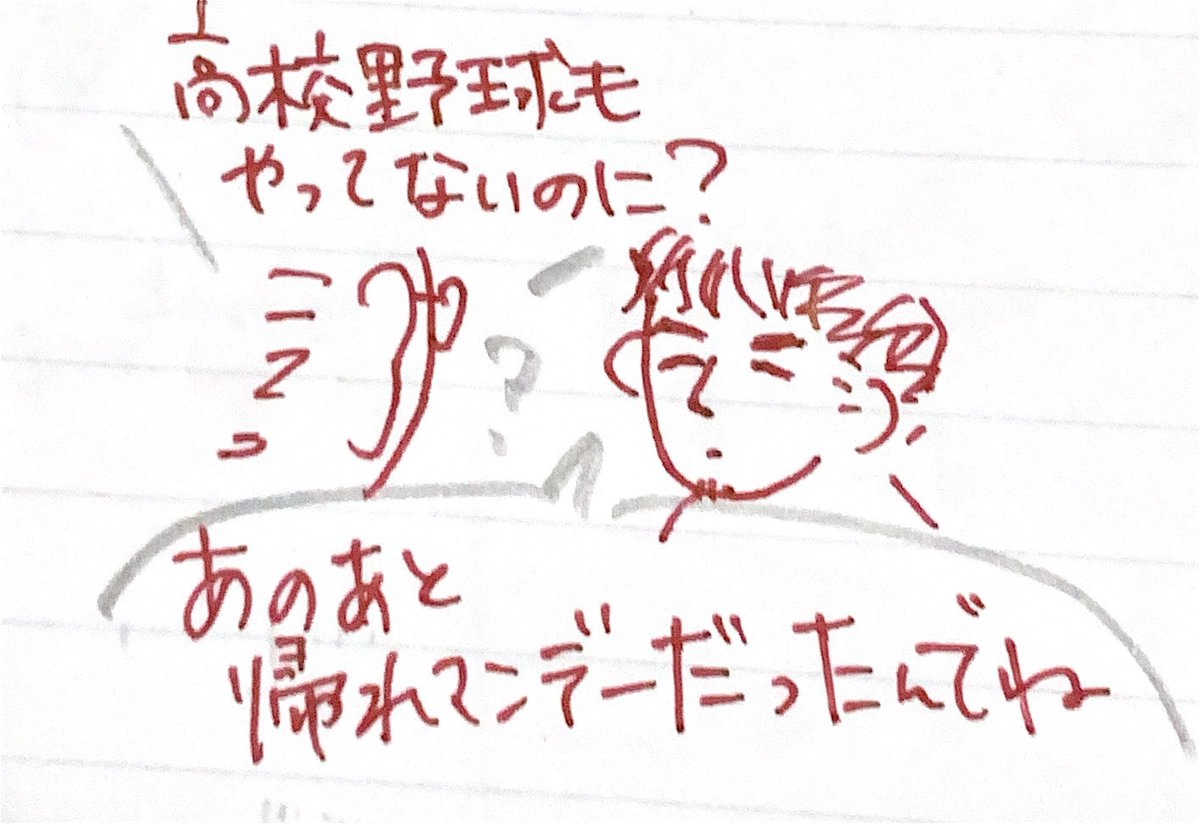 高校野球も
やってないのに?
?
あのあと
帰れマンデーだったんでね